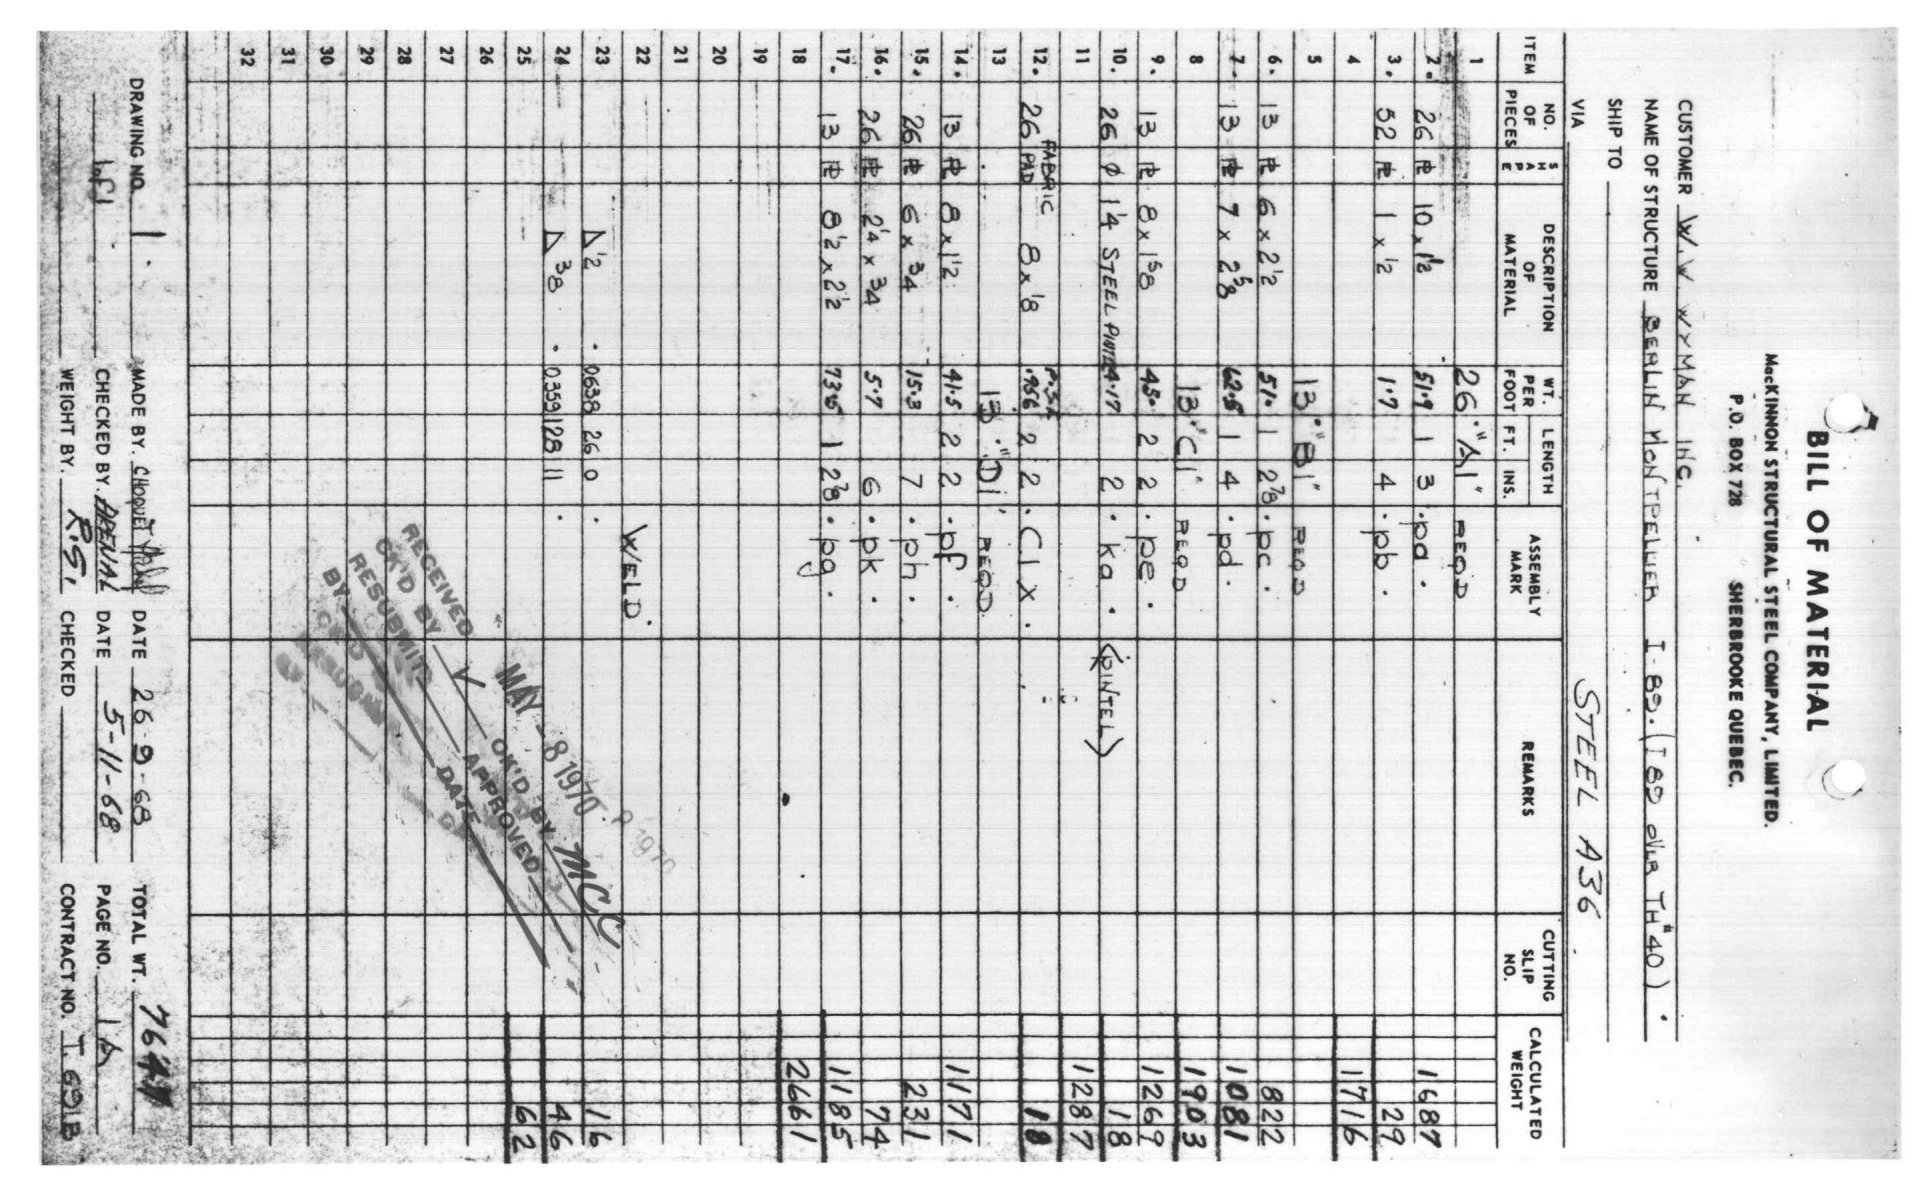 BILL OF MATERIAL
MacKINNON STRUCTURAL STEEL COMPANY, LIMITED.
P.O. BOX 728 SHERBROOKE QUEBEC.
CUSTOMER W.W WYMAN INC.
NAME OF STRUCTURE BERLIN MONTPELLIER I-89. (I 89 OVER TH#40).
SHIP TO
VIA STEEL A36
ITEM NO. OF PIECES SHAPE DESCRIPTION OF MATERIAL WT. PER FOOT LENGTH FT. INS. ASSEMBLY MARK REMARKS CUTTING SLIP NO. CALCULATED WEIGHT
1 26 "A1" REQD
2. 26 PL 10 x 1 1/2 51.9 1 3 pa. 1687
3. 52 PL 1 x 1/2 1.7 4 pb. 29
4 1716
5 13 "B1" REQD
6. 13 PL 6 x 2 1/2 51. 1 2 7/8 pc. 822
7. 13 PL 7 x 2 5/8 62.5 1 4 pd. 1081
8 13 "C1" REQD 1903
9. 13 PL 8 x 1 5/8 45. 2 2 pe. 1269
10. 26 ø 1 1/4 STEEL 4.17 2 ka. (PINTEL) 18
11 1287
12. 26 FABRIC PAD 8 x 1/8 .956 2 2 C1X. 18
13 13 "D1" REQD
14. 13 PL 8 x 1 1/2 41.5 2 2 pf. 1171
15. 26 PL 6 x 3/4 15.3 7 ph. 231
16. 26 PL 2 1/4 x 3/4 5.7 6 pk. 74
17. 13 PL 8 1/2 x 2 1/2 73.5 1 2 7/8 pg. 1185
18 2661
19
20
21
22 WELD.
23 1/2 .0638 26 0 16
24 3/8 .0359 128 11 46
25 62
26
27
28
29
30
31
32
RECEIVED MAY -8 1970
OK'D BY OK'D BY MCC
RESUBMIT APPROVED
BY DATE
DRAWING NO. 1 MADE BY. CHOQUET DATE 26-9-68 TOTAL WT. 7647
1 of 1 CHECKED BY. DATE 5-11-68 PAGE NO. 1A
WEIGHT BY. R.S. CHECKED CONTRACT NO. T. 691B